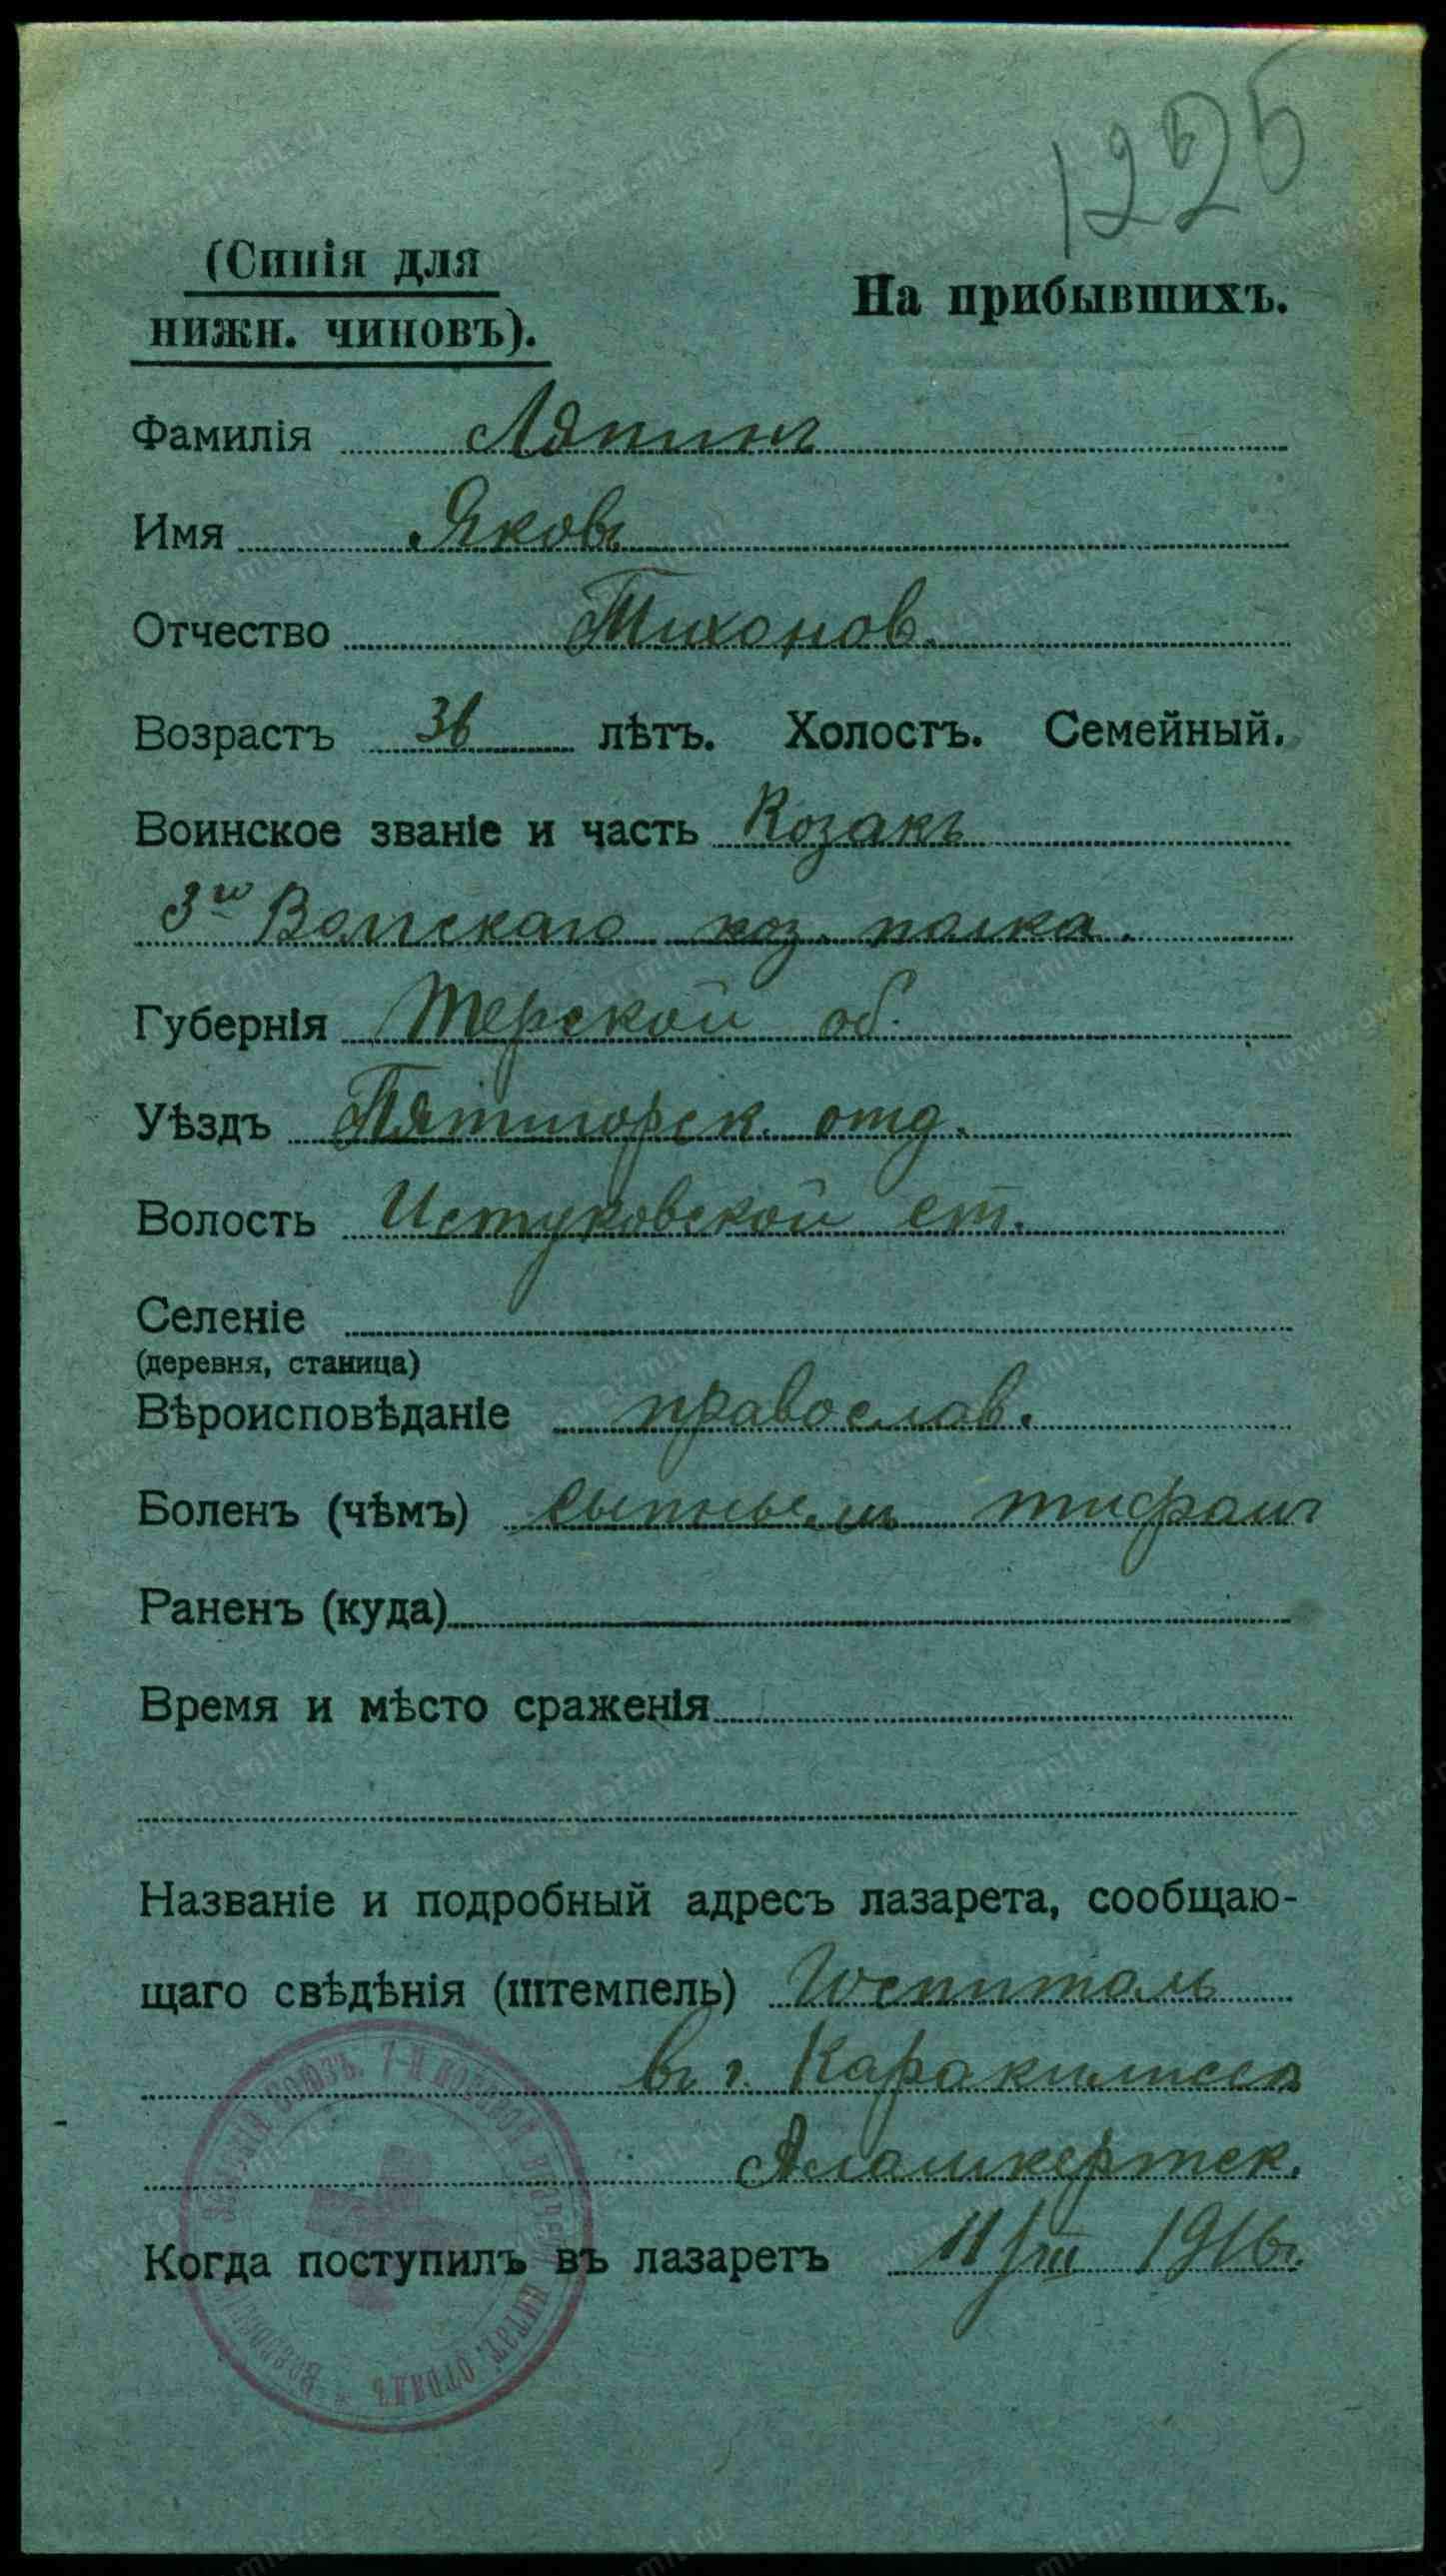 1225
(Синія для
нижн. чиновъ).
На прибывшихъ.
Фамилія Ляпинъ
Имя Яковъ
Отчество Тихонов.
Возрастъ 36 лѣтъ. Холостъ. Семейный.
Воинское званіе и часть Козакъ
3го Волгскаго коз. полка.
Губернія Терской об.
Уѣздъ Пятигорск. отд.
Волость Истуковской ст.
Селеніе
(деревня, станица)
Вѣроисповѣданіе православ.
Боленъ (чѣмъ) сыпнымъ тифомъ
Раненъ (куда)
Время и мѣсто сраженія
Названіе и подробный адресъ лазарета, сообщаю-
щаго свѣдѣнія (штемпель) Госпиталь
въ г. Каракилисса
Алашкертск.
Когда поступилъ въ лазаретъ 11/III 1916г.
союзъ. 7-й
питат. отрядъ * Всеросс
www.gwar.mil.ru